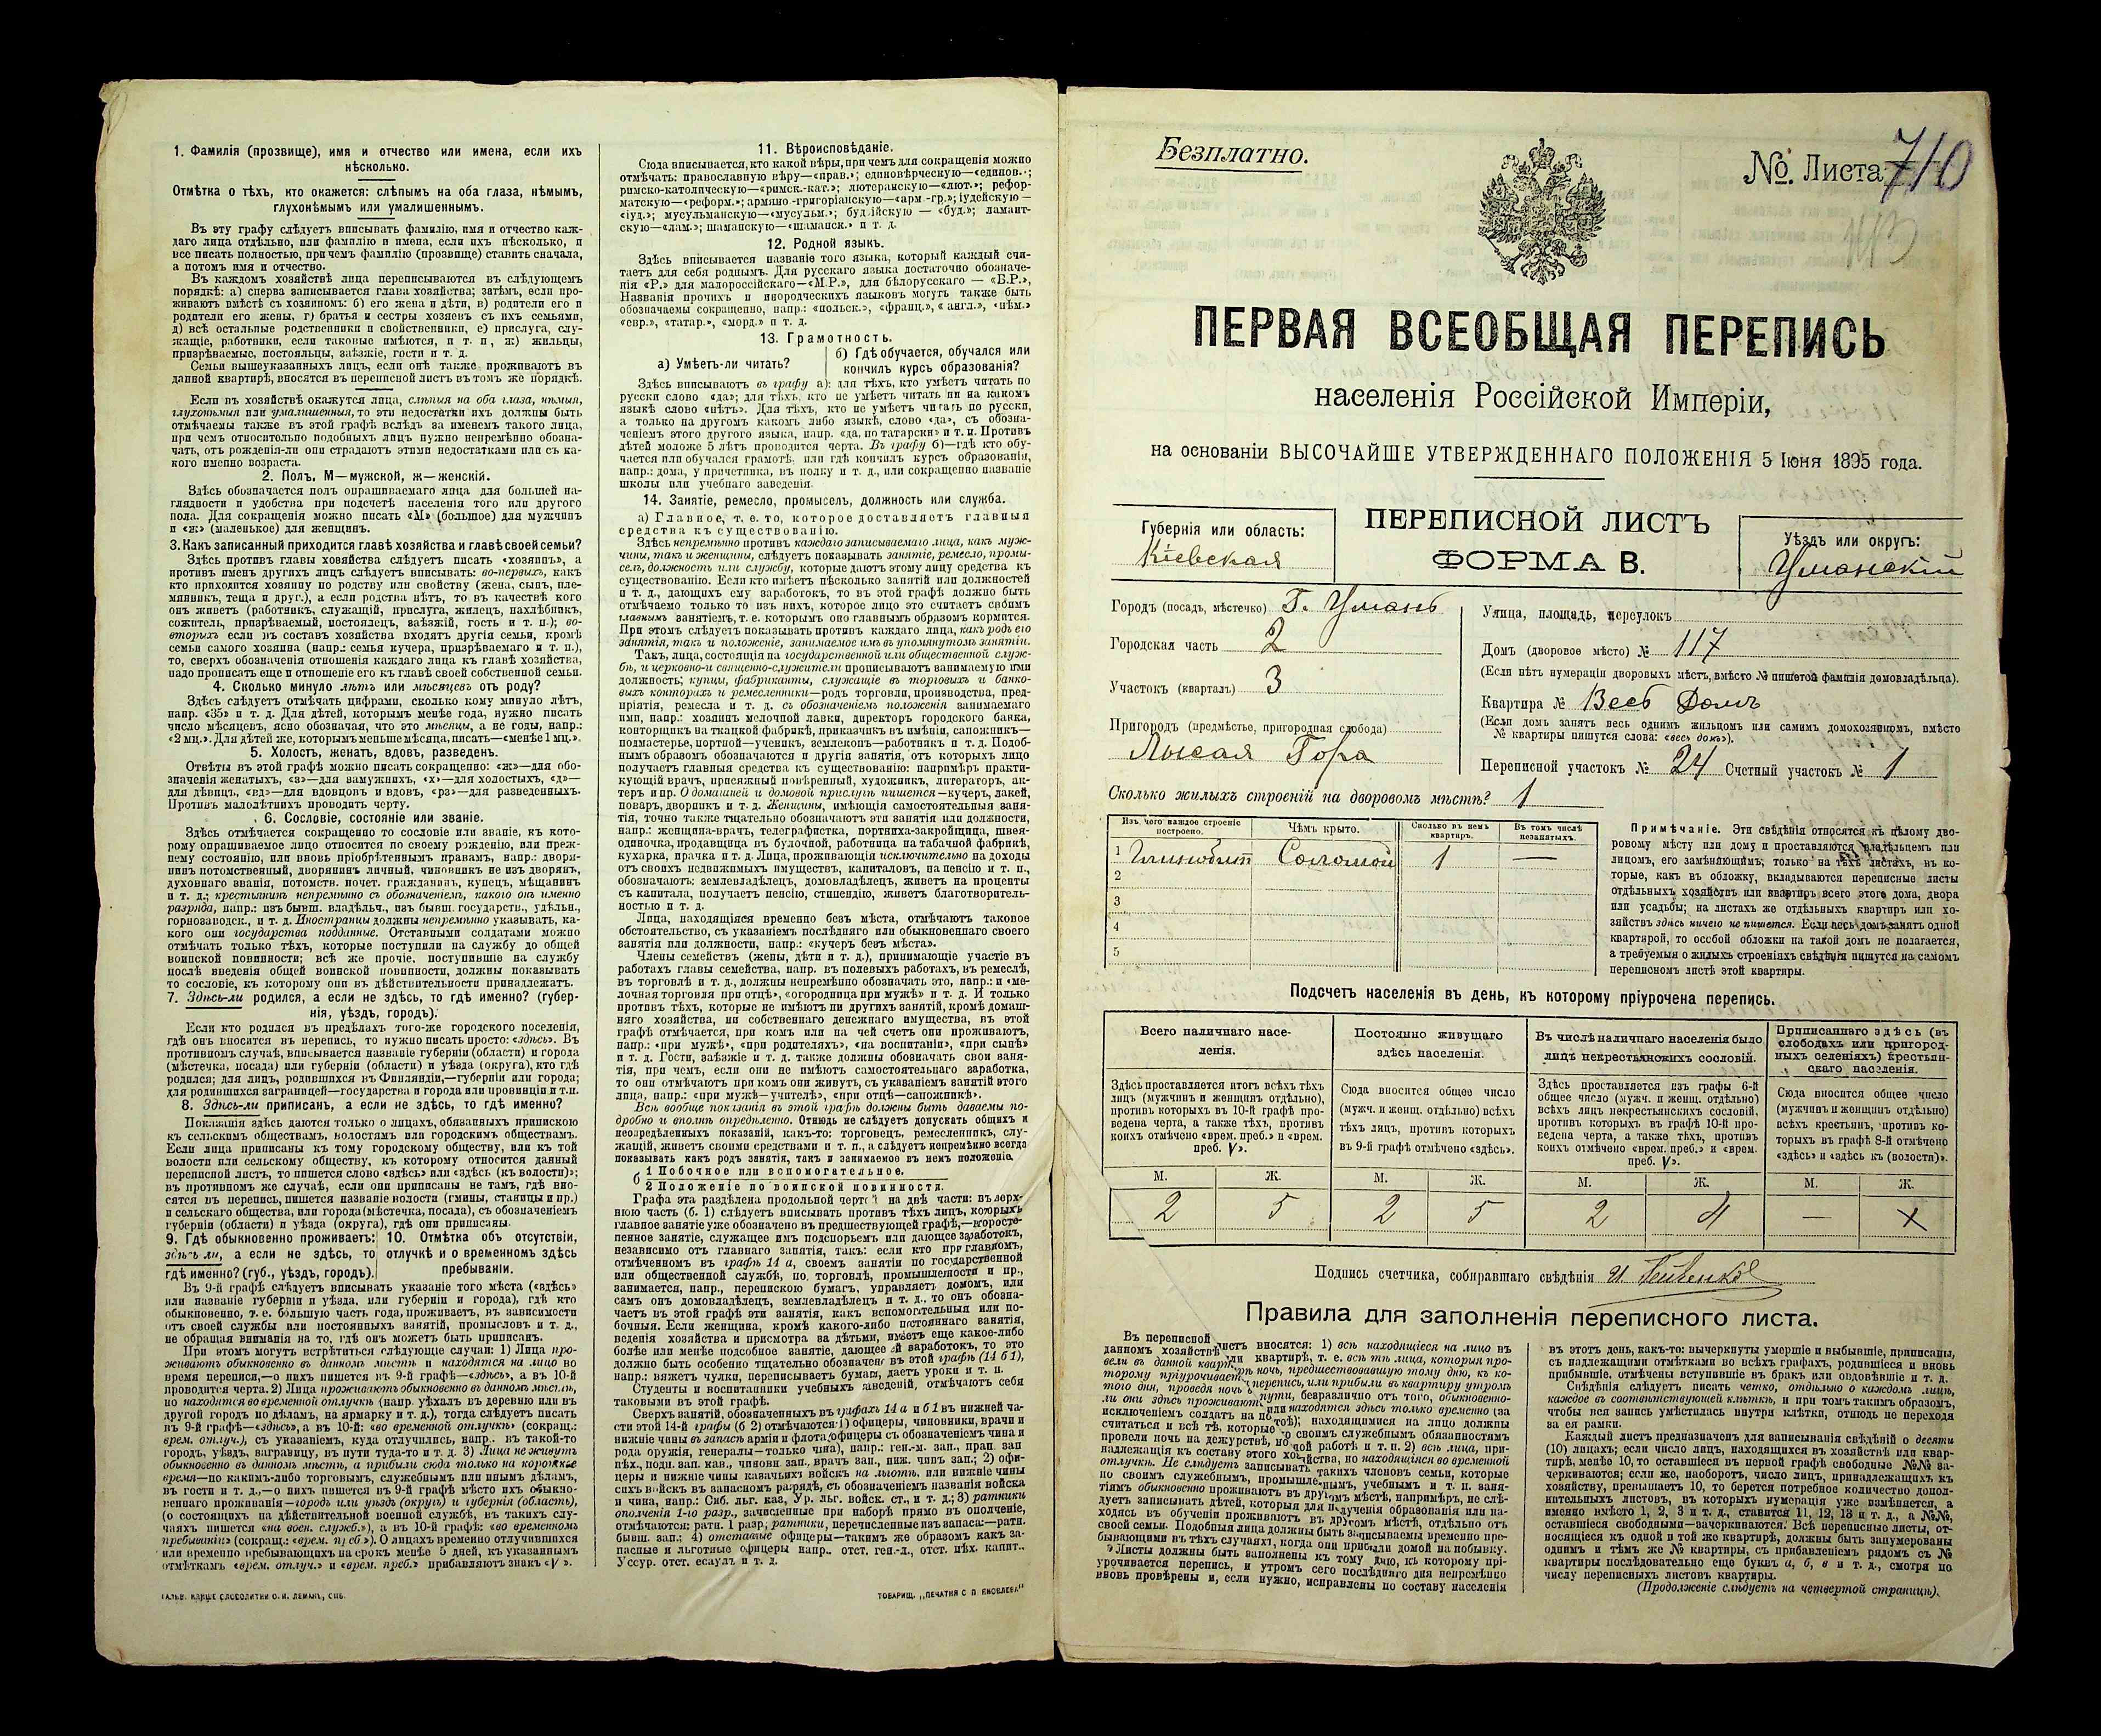 1. Фамилія (прозвище), имя и отчество или имена, если ихъ
нѣсколько.
Отмѣтка о тѣхъ, кто окажется: слѣпымъ на оба глаза, нѣмымъ,
глухонѣмымъ или умалишеннымъ.
Въ эту графу слѣдуетъ вписывать фамилію, имя и отчество каж-
даго лица отдѣльно, или фамилію и имена, если ихъ нѣсколько, и
все писать полностью, при чемъ фамилію (прозвище) ставить сначала,
а потомъ имя и отчество.
Въ каждомъ хозяйствѣ лица переписываются въ слѣдующемъ
порядкѣ: а) сперва записывается глава хозяйства; затѣмъ, если про-
живаютъ вмѣстѣ съ хозяиномъ: б) его жена и дѣти, в) родители его и
родители его жены, г) братья и сестры хозяевъ съ ихъ семьями,
д) всѣ остальные родственники и свойственники, е) прислуга, слу-
жащіе, работники, если таковые имѣются, и т. п., ж) жильцы,
призрѣваемые, постояльцы, заѣзжіе, гости и т. д.
Семьи вышеуказанныхъ лицъ, если онѣ также проживаютъ въ
данной квартирѣ, вносятся въ переписной листъ въ томъ же порядкѣ.
Если въ хозяйствѣ окажутся лица, слѣпыя на оба глаза, нѣмыя,
глухонѣмыя или умалишенныя, то эти недостатки ихъ должны быть
отмѣчаемы также въ этой графѣ вслѣдъ за именемъ такого лица,
при чемъ относительно подобныхъ лицъ нужно непремѣнно обозна-
чать, отъ рожденія-ли они страдаютъ этими недостатками или съ ка-
кого именно возраста.
2. Полъ. М—мужской, ж—женскій.
Здѣсь обозначается полъ опрашиваемаго лица для большей на-
глядности и удобства при подсчетѣ населенія того или другого
пола. Для сокращенія можно писать «М» (большое) для мужчинъ
и «ж» (маленькое) для женщинъ.
3. Какъ записанный приходится главѣ хозяйства и главѣ своей семьи?
Здѣсь противъ главы хозяйства слѣдуетъ писать «хозяинъ», а
противъ именъ другихъ лицъ слѣдуетъ вписывать: во-первыхъ, какъ
кто приходится хозяину по родству или свойству (жена, сынъ, пле-
мянникъ, теща и друг.), а если родства нѣтъ, то въ качествѣ кого
онъ живетъ (работникъ, служащій, прислуга, жилецъ, нахлѣбникъ,
сожитель, призрѣваемый, постоялецъ, заѣзжій, гость и т. п.); во-
вторыхъ если въ составъ хозяйства входятъ другія семьи, кромѣ
семьи самого хозяина (напр.: семья кучера, призрѣваемаго и т. п.),
то, сверхъ обозначенія отношенія каждаго лица къ главѣ хозяйства,
надо прописать еще и отношеніе его къ главѣ своей собственной семьи.
4. Сколько минуло лѣтъ или мѣсяцевъ отъ роду?
Здѣсь слѣдуетъ отмѣчать цифрами, сколько кому минуло лѣтъ,
напр. «35» и т. д. Для дѣтей, которымъ менѣе года, нужно писать
число мѣсяцевъ, ясно обозначая, что это мѣсяцы, а не годы, напр.:
«2 мц.». Для дѣтей же, которымъ меньше мѣсяца, писать—«менѣе 1 мц.».
5. Холостъ, женатъ, вдовъ, разведенъ.
Отвѣты въ этой графѣ можно писать сокращенно: «ж»—для обо-
значенія женатыхъ, «з»—для замужнихъ, «х»—для холостыхъ, «д»—
для дѣвицъ, «вд»—для вдовцовъ и вдовъ, «рз»—для разведенныхъ.
Противъ малолѣтнихъ проводить черту.
6. Сословіе, состояніе или званіе.
Здѣсь отмѣчается сокращенно то сословіе или званіе, къ кото-
рому опрашиваемое лицо относится по своему рожденію, или преж-
нему состоянію, или вновь пріобрѣтеннымъ правамъ, напр.: дворя-
нинъ потомственный, дворянинъ личный, чиновникъ не изъ дворянъ,
духовнаго званія, потомств. почет. гражданинъ, купецъ, мѣщанинъ
и т. д.; крестьянинъ непремѣнно съ обозначеніемъ, какого онъ именно
разряда, напр.: изъ бывш. владѣльч., изъ бывш. государств., удѣльн.,
горнозаводск., и т. д. Иностранцы должны непремѣнно указывать, ка-
кого они государства подданные. Отставными солдатами можно
отмѣчать только тѣхъ, которые поступили на службу до общей
воинской повинности; всѣ же прочіе, поступившіе на службу
послѣ введенія общей воинской повинности, должны показывать
то сословіе, къ которому они въ дѣйствительности принадлежатъ.
7. Здѣсь-ли родился, а если не здѣсь, то гдѣ именно? (губер-
нія, уѣздъ, городъ).
Если кто родился въ предѣлахъ того-же городского поселенія,
гдѣ онъ вносится въ перепись, то нужно писать просто: «здѣсь». Въ
противномъ случаѣ, вписывается названіе губерніи (области) и города
(мѣстечка, посада) или губерніи (области) и уѣзда (округа), кто гдѣ
родился; для лицъ, родившихся въ Финляндіи,—губерніи или города;
для родившихся заграницей—государства и города или провинціи и т.п.
8. Здѣсь-ли приписанъ, а если не здѣсь, то гдѣ именно?
Показанія здѣсь даются только о лицахъ, обязанныхъ припискою
къ сельскимъ обществамъ, волостямъ или городскимъ обществамъ.
Если лица приписаны къ тому городскому обществу, или къ той
волости или сельскому обществу, къ которому относится данный
переписной листъ, то пишется слово «здѣсь» или «здѣсь (къ волости)»;
въ противномъ же случаѣ, если они приписаны не тамъ, гдѣ вно-
сятся въ перепись, пишется названіе волости (гмины, станицы и пр.)
и сельскаго общества, или города (мѣстечка, посада), съ обозначеніемъ
губерніи (области) и уѣзда (округа), гдѣ они приписаны.
9. Гдѣ обыкновенно проживаетъ:
здѣсь ли, а если не здѣсь, то
гдѣ именно? (губ., уѣздъ, городъ).
10. Отмѣтка объ отсутствіи,
отлучкѣ и о временномъ здѣсь
пребываніи.
Въ 9-й графѣ слѣдуетъ вписывать указаніе того мѣста («здѣсь»
или названіе губерніи и уѣзда, или губерніи и города), гдѣ кто
обыкновенно, т. е. большую часть года, проживаетъ, въ зависимости
отъ своей службы или постоянныхъ занятій, промысловъ и т. д.,
не обращая вниманія на то, гдѣ онъ можетъ быть приписанъ.
При этомъ могутъ встрѣтиться слѣдующіе случаи: 1) Лица про-
живаютъ обыкновенно въ данномъ мѣстѣ и находятся на лицо во
время переписи,—о нихъ пишется въ 9-й графѣ—«здѣсь», а въ 10-й
проводится черта. 2) Лица проживаютъ обыкновенно въ данномъ мѣстѣ,
но находятся во временной отлучкѣ (напр. уѣхалъ въ деревню или въ
другой городъ по дѣламъ, на ярмарку и т. д.), тогда слѣдуетъ писать
въ 9-й графѣ—«здѣсь», а въ 10-й: «во временной отлучкѣ» (сокращ.:
врем. отлуч.), съ указаніемъ, куда отлучились, напр.. въ такой-то
городъ, уѣздъ, заграницу, въ пути туда-то и т. д. 3) Лица не живутъ
обыкновенно въ данномъ мѣстѣ, а прибыли сюда только на короткое
время—по какимъ-либо торговымъ, служебнымъ или инымъ дѣламъ,
въ гости и т. д.,—о нихъ пишется въ 9-й графѣ мѣсто ихъ обыкно-
веннаго проживанія—городъ или уѣздъ (округъ) и губернія (область),
(о состоящихъ на дѣйствительной военной службѣ, въ такихъ слу-
чаяхъ пишется «на воен. службѣ»), а въ 10-й графѣ: «во временномъ
пребываніи» (сокращ.: «врем. преб»). О лицахъ временно отлучившихся
или временно пребывающихъ на срокъ менѣе 5 дней, къ указаннымъ
отмѣткамъ «врем. отлуч.» и «врем. преб.» прибавляютъ знакъ «V».
11. Вѣроисповѣданіе.
Сюда вписывается, кто какой вѣры, при чемъ для сокращенія можно
отмѣчать: православную вѣру—«прав.»; единовѣрческую—«единов.»;
римско-католическую—«римск.-кат.»; лютеранскую—«лют.»; рефор-
матскую—«реформ.»; армяно-григоріанскую—«арм-гр.»; іудейскую—
«іуд.»; мусульманскую—«мусульм.»; буддійскую — «буд.»; ламаит-
скую—«лам.»; шаманскую—«шаманск.» и т. д.
12. Родной языкъ.
Здѣсь вписывается названіе того языка, который каждый счи-
таетъ для себя роднымъ. Для русскаго языка достаточно обозначе-
нія «Р.» для малороссійскаго—«М.Р.», для бѣлорусскаго — «Б.Р.»,
Названія прочихъ и инородческихъ языковъ могутъ также быть
обозначаемы сокращенно, напр.: «польск.», «франц.», «англ.», «нѣм.»
«евр.», «татар.», «морд.» и т. д.
13. Грамотность.
а) Умѣетъ-ли читать?
б) Гдѣ обучается, обучался или
кончилъ курсъ образованія?
Здѣсь вписываютъ въ графу а): для тѣхъ, кто умѣетъ читать по
русски слово «да»; для тѣхъ, кто не умѣетъ читать ни на какомъ
языкѣ слово «нѣтъ». Для тѣхъ, кто не умѣетъ читать по русски,
а только на другомъ какомъ либо языкѣ, слово «да», съ обозна-
ченіемъ этого другого языка, напр. «да, по татарски» и т. п. Противъ
дѣтей моложе 5 лѣтъ проводится черта. Въ графу б)—гдѣ кто обу-
чается или обучался грамотѣ, или гдѣ кончилъ курсъ образованія,
напр.: дома, у причетника, въ полку и т. д., или сокращенно названіе
школы или учебнаго заведенія.
14. Занятіе, ремесло, промыселъ, должность или служба.
а) Главное, т. е. то, которое доставляетъ главныя
средства къ существованію.
Здѣсь непремѣнно противъ каждаго записываемаго лица, какъ муж-
чины, такъ и женщины, слѣдуетъ показывать занятіе, ремесло, промы-
селъ, должность или службу, которые даютъ этому лицу средства къ
существованію. Если кто имѣетъ нѣсколько занятій или должностей
и т. д., дающихъ ему заработокъ, то въ этой графѣ должно быть
отмѣчаемо только то изъ нихъ, которое лицо это считаетъ своимъ
главнымъ занятіемъ, т. е. которымъ оно главнымъ образомъ кормится.
При этомъ слѣдуетъ показывать противъ каждаго лица, какъ родъ его
занятія, такъ и положеніе, занимаемое имъ въ упомянутомъ занятіи.
Такъ, лица, состоящія на государственной или общественной служ-
бѣ, и церковно-и священно-служители прописываютъ занимаемую ими
должность; купцы, фабриканты, служащіе въ торговыхъ и банко-
выхъ конторахъ и ремесленники—родъ торговли, производства, пред-
пріятія, ремесла и т. д. съ обозначеніемъ положенія занимаемаго
ими, напр.: хозяинъ мелочной лавки, директоръ городского банка,
конторщикъ на ткацкой фабрикѣ, приказчикъ въ имѣніи, сапожникъ—
подмастерье, портной—ученикъ, землекопъ—работникъ и т. д. Подоб-
нымъ образомъ обозначаются и другія занятія, отъ которыхъ лицо
получаетъ главныя средства къ существованію: напримѣръ практи-
кующій врачъ, присяжный повѣренный, художникъ, литераторъ, ак-
теръ и пр. О домашней и домовой прислугѣ пишется—кучеръ, лакей,
поваръ, дворникъ и т. д. Женщины, имѣющія самостоятельныя заня-
тія, точно также тщательно обозначаютъ эти занятія или должности,
напр.: женщина-врачъ, телеграфистка, портниха-закройщица, швея-
одиночка, продавщица въ булочной, работница на табачной фабрикѣ,
кухарка, прачка и т. д. Лица, проживающія исключительно на доходы
отъ своихъ недвижимыхъ имуществъ, капиталовъ, на пенсію и т. п.,
обозначаютъ: землевладѣлецъ, домовладѣлецъ, живетъ на проценты
съ капитала, получаетъ пенсію, стипендію, живетъ благотворитель-
ностью и т. д.
Лица, находящіяся временно безъ мѣста, отмѣчаютъ таковое
обстоятельство, съ указаніемъ послѣдняго или обыкновеннаго своего
занятія или должности, напр.: «кучеръ безъ мѣста».
Члены семействъ (жены, дѣти и т. д.), принимающіе участіе въ
работахъ главы семейства, напр. въ полевыхъ работахъ, въ ремеслѣ,
въ торговлѣ и т. д., должны непремѣнно обозначать это, напр.: и «ме-
лочная торговля при отцѣ», «огородница при мужѣ» и т. д. И только
противъ тѣхъ, которые не имѣютъ ни другихъ занятій, кромѣ домаш-
няго хозяйства, ни собственнаго денежнаго имущества, въ этой
графѣ отмѣчается, при комъ или на чей счетъ они проживаютъ,
напр.: «при мужѣ», «при родителяхъ», «на воспитаніи», «при сынѣ»
и т. д. Гости, заѣзжіе и т. д. также должны обозначать свои заня-
тія, при чемъ, если они не имѣютъ самостоятельнаго заработка,
то они отмѣчаютъ при комъ они живутъ, съ указаніемъ занятій этого
лица, напр.: «при мужѣ—учителѣ», «при отцѣ—сапожникѣ».
Всѣ вообще показанія въ этой графѣ должны быть даваемы по-
дробно и вполнѣ опредѣленно. Отнюдь не слѣдуетъ допускать общихъ и
неопредѣленныхъ показаній, какъ-то: торговецъ, ремесленникъ, слу-
жащій, живетъ своими средствами и т. п., а слѣдуетъ непремѣнно всегда
показывать какъ родъ занятія, такъ и занимаемое въ немъ положеніе.
б 1 Побочное или вспомогательное.
2 Положеніе по воинской повинности.
Графа эта раздѣлена продольной чертой на двѣ части: въ верх-
нюю часть (б. 1) слѣдуетъ вписывать противъ тѣхъ лицъ, которыхъ
главное занятіе уже обозначено въ предшествующей графѣ,—второсте-
пенное занятіе, служащее имъ подспорьемъ или дающее заработокъ,
независимо отъ главнаго занятія, такъ: если кто при главномъ,
отмѣченномъ въ графѣ 14 а, своемъ занятіи по государственной
или общественной службѣ, по торговлѣ, промышленности и пр.,
занимается, напр., перепискою бумагъ, управляетъ домомъ, или
самъ онъ домовладѣлецъ, землевладѣлецъ и т. д., то онъ обозна-
чаетъ въ этой графѣ эти занятія, какъ вспомогательныя или по-
бочныя. Если женщина, кромѣ какого-либо постояннаго занятія,
веденія хозяйства и присмотра за дѣтьми, имѣетъ еще какое-либо
болѣе или менѣе подсобное занятіе, дающее ей заработокъ, то это
должно быть особенно тщательно обозначено въ этой графѣ (14 б 1),
напр.: вяжетъ чулки, переписываетъ бумаги, даетъ уроки и т. п.
Студенты и воспитанники учебныхъ заведеній, отмѣчаютъ себя
таковыми въ этой графѣ.
Сверхъ занятій, обозначенныхъ въ графахъ 14 а и б 1 въ нижней ча-
сти этой 14-й графы (б 2) отмѣчаются: 1) офицеры, чиновники, врачи и
нижніе чины въ запасѣ арміи и флота (офицеры съ обозначеніемъ чина и
рода оружія, генералы—только чина), напр.: ген-м. зап., прап. зап
пѣх., подп. зап. кав., чиновн. зап., врачъ зап., ниж. чинъ зап.; 2) офи-
церы и нижніе чины казачьихъ войскъ на льготѣ, или нижніе чины
сихъ войскъ въ запасномъ разрядѣ, съ обозначеніемъ названія войска
и чина, напр.: Сиб. льг. каз., Ур. льг. войск. ст., и т. д.; 3) ратники
ополченія 1-го разр., зачисленные при наборѣ прямо въ ополченіе,
отмѣчаются: ратн. 1 разр.; ратники, перечисленные изъ запаса:—ратн.
бывш. зап.; 4) отставные офицеры—такимъ же образомъ какъ за-
пасные и льготные офицеры напр., отст. ген.-л., отст. пѣх. капит.,
Уссур. отст. есаулъ и т. д.
ТОВАРИЩ. „ПЕЧАТНЯ С. П. ЯКОВЛЕВА“
Безплатно.
№. Листа 710
ПЕРВАЯ ВСЕОБЩАЯ ПЕРЕПИСЬ
населенія Россійской Имперіи,
на основаніи ВЫСОЧАЙШЕ УТВЕРЖДЕННАГО ПОЛОЖЕНІЯ 5 Іюня 1895 года.
Губернія или область:
Кіевская
ПЕРЕПИСНОЙ ЛИСТЪ
ФОРМА В.
Уѣздъ или округъ:
Уманскій
Городъ (посадъ, мѣстечко) Г. Умань
Городская часть 2
Участокъ (кварталъ) 3
Пригородъ (предмѣстье, пригородная слобода)
Лысая Гора
Улица, площадь, переулокъ
Домъ (дворовое мѣсто) № 117
(Если нѣтъ нумераціи дворовыхъ мѣстъ, вмѣсто № пишется фамилія домовладѣльца).
Квартира № Весь Домъ
(Если домъ занятъ весь однимъ жильцомъ или самимъ домохозяиномъ, вмѣсто
№ квартиры пишутся слова: «весь домъ»).
Переписной участокъ № 24 Счетный участокъ № 1
Сколько жилыхъ строеній на дворовомъ мѣстѣ? 1
Изъ чего каждое строеніе построено.
Чѣмъ крыто.
Сколько въ немъ квартиръ.
Въ томъ числѣ незанятыхъ.
1 Глинобит Соломой 1 —
2
3
4
5
Примѣчаніе. Эти свѣдѣнія относятся къ цѣлому дво-
ровому мѣсту или дому и проставляются владѣльцемъ или
лицомъ, его замѣняющимъ; только на тѣхъ листахъ, въ ко-
торые, какъ въ обложку, вкладываются переписные листы
отдѣльныхъ хозяйствъ или квартиръ всего этого дома, двора
или усадьбы; на листахъ же отдѣльныхъ квартиръ или хо-
зяйствъ здѣсь ничего не пишется. Если весь домъ занятъ одной
квартирой, то особой обложки на такой домъ не полагается,
а требуемыя о жилыхъ строеніяхъ свѣдѣнія пишутся на самомъ
переписномъ листѣ этой квартиры.
Подсчетъ населенія въ день, къ которому пріурочена перепись.
Всего наличнаго насе-
ленія.
Здѣсь проставляется итогъ всѣхъ тѣхъ
лицъ (мужчинъ и женщинъ отдѣльно),
противъ которыхъ въ 10-й графѣ про-
ведена черта, а также тѣхъ, противъ
коихъ отмѣчено «врем. преб.» и «врем.
преб. V».
Постоянно живущаго
здѣсь населенія.
Сюда вносится общее число
(мужч. и женщ. отдѣльно) всѣхъ
тѣхъ лицъ, противъ которыхъ
въ 9-й графѣ отмѣчено «здѣсь».
Въ числѣ наличнаго населенія было
лицъ некрестьянскихъ сословій.
Здѣсь проставляется изъ графы 6-й
общее число (мужч. и женщ. отдѣльно)
всѣхъ лицъ некрестьянскихъ сословій,
противъ которыхъ въ графѣ 10-й про-
ведена черта, а также тѣхъ, противъ
коихъ отмѣчено «врем. преб.» и «врем.
преб. V».
Приписаннаго здѣсь (въ
слободахъ или пригород-
ныхъ селеніяхъ) крестьян-
скаго населенія.
Сюда вносится общее число
(мужчинъ и женщинъ отдѣльно)
всѣхъ крестьянъ, противъ ко-
торыхъ въ графѣ 8-й отмѣчено
«здѣсь» и «здѣсь къ (волости)».
М. Ж. М. Ж. М. Ж. М. Ж.
2 5 2 5 2 4 —
Подпись счетчика, собиравшаго свѣдѣнія И.
Правила для заполненія переписного листа.
Въ переписной листъ вносятся: 1) всѣ находящіеся на лицо въ
данномъ хозяйствѣ или квартирѣ, т. е. всѣ тѣ лица, которыя про-
вели въ данной квартирѣ ночь, предшествовавшую тому дню, къ ко-
торому пріурочивается перепись, или прибыли въ квартиру утромъ
того дня, проведя ночь въ пути, безразлично отъ того, обыкновенно-
ли они здѣсь проживаютъ или находятся здѣсь только временно (за
исключеніемъ солдатъ на постоѣ); находящимися на лицо должны
считаться и всѣ тѣ, которые по своимъ служебнымъ обязанностямъ
провели ночь на дежурствѣ, ночной работѣ и т. п. 2) всѣ лица, при-
надлежащія къ составу этого хозяйства, но находящіяся во временной
отлучкѣ. Не слѣдуетъ записывать такихъ членовъ семьи, которые
по своимъ служебнымъ, промышленнымъ, учебнымъ и т. п. заня-
тіямъ обыкновенно проживаютъ въ другомъ мѣстѣ, напримѣръ, не слѣ-
дуетъ записывать дѣтей, которыя для полученія образованія или на-
ходясь въ обученіи проживаютъ въ другомъ мѣстѣ, отдѣльно отъ
своей семьи. Подобныя лица должны быть записываемы временно пре-
бывающими въ тѣхъ случаяхъ, когда они прибыли домой на побывку.
Листы должны быть заполнены къ тому дню, къ которому прі-
урочивается перепись, и утромъ сего послѣдняго дня непремѣнно
вновь провѣрены и, если нужно, исправлены по составу населенія
въ этотъ день, какъ-то: вычеркнуты умершіе и выбывшіе, приписаны,
съ надлежащими отмѣтками во всѣхъ графахъ, родившіеся и вновь
прибывшіе, отмѣчены вступившіе въ бракъ или овдовѣвшіе и т. д.
Свѣдѣнія слѣдуетъ писать четко, отдѣльно о каждомъ лицѣ,
каждое въ соотвѣтствующей клѣткѣ, и при томъ такимъ образомъ,
чтобы вся запись умѣстилась внутри клѣтки, отнюдь не переходя
за ея рамки.
Каждый листъ предназначенъ для записыванія свѣдѣній о десяти
(10) лицахъ; если число лицъ, находящихся въ хозяйствѣ или квар-
тирѣ, менѣе 10, то оставшіеся въ первой графѣ свободные №№ за-
черкиваются; если же, наоборотъ, число лицъ, принадлежащихъ къ
хозяйству, превышаетъ 10, то берется потребное количество допол-
нительныхъ листовъ, въ которыхъ нумерація уже измѣняется, а
именно вмѣсто 1, 2, 3 и т. д., ставится 11, 12, 13 и т. д., а №№,
оставшіеся свободными—зачеркиваются. Всѣ переписные листы, от-
носящіеся къ одной и той же квартирѣ, должны быть занумерованы
однимъ и тѣмъ же № квартиры, съ прибавленіемъ рядомъ съ №
квартиры послѣдовательно еще буквъ а, б, в и т. д., смотря по
числу переписныхъ листовъ квартиры.
(Продолженіе слѣдуетъ на четвертой страницѣ).